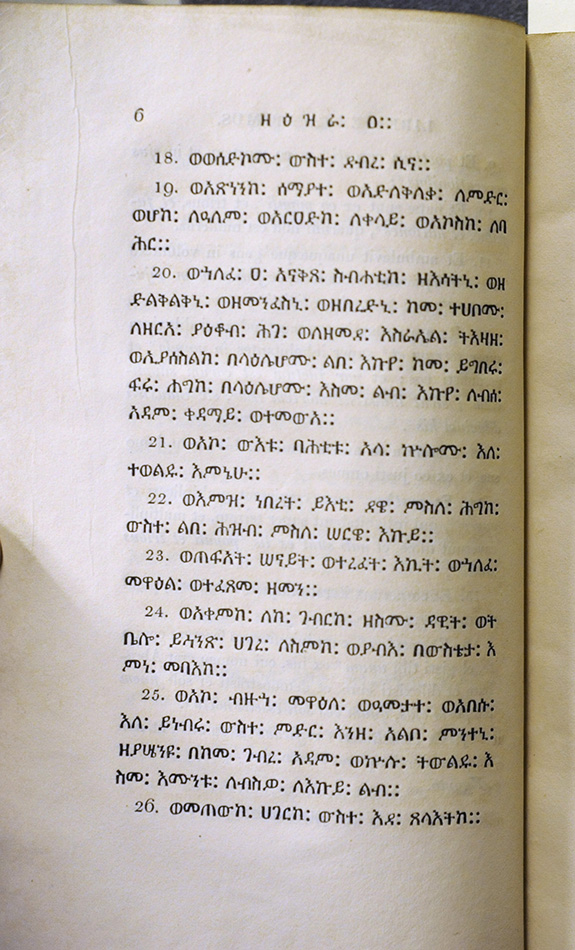 6 ዘዕዝራ፡ ፀ፡፡
18. ወወሰድኮሙ፡ ውስተ፡ ደብረ፡ ሲና፡፡
19. ወአጽነንከ፡ ሰማያተ፡ ወአድለቅለቃ፡ ለምድር፡
ወሆከ፡ ለዓለም፡ ወአርዐድከ፡ ለቀላይ፡ ወአኮስከ፡ ለባ
ሕር፡፡
20. ወኀለፈ፡ ፀ፡ አናቅጸ፡ ስብሐቲከ፡ ዘእሳትኒ፡ ወዘ
ድልቅልቅኒ፡ ወዘመንፈስኒ፡ ወዘበረድኒ፡ ከመ፡ ተሀበሙ፡
ለዘርአ፡ ያዕቆብ፡ ሕገ፡ ወለዘመደ፡ እስራኤል፡ ትእዛዘ፡
ወኢያሰስልከ፡ በላዕሌሆሙ፡ ልበ፡ እኩየ፡ ከመ፡ ይግበሩ፡
ፍሬ፡ ሕግከ፡ በላዕሌሆሙ፡ እስመ፡ ልብ፡ እኩየ፡ ለብሰ፡
አዳም፡ ቀዳማይ፡ ወተመውአ፡፡
21. ወአኮ፡ ውእቱ፡ ባሕቲቱ፡ አላ፡ ኵሎሙ፡ እለ፡
ተወልዱ፡ እምኔሁ፡፡
22. ወእምዝ፡ ነበረት፡ ይእቲ፡ ደዌ፡ ምስለ፡ ሕግከ፡
ውስተ፡ ልበ፡ ሕዝብ፡ ምስለ፡ ሠርዌ፡ እኩይ፡፡
23. ወጠፍአት፡ ሠናይት፡ ወተረፈት፡ እኪት፡ ወኀለፈ፡
መዋዕል፡ ወተፈጸመ፡ ዘመን፡፡
24. ወአቀምከ፡ ለከ፡ ገብርከ፡ ዘስሙ፡ ዳዊት፡ ወት
ቤሎ፡ ይሕንጽ፡ ሀገረ፡ ለስምከ፡ ወያብእ፡ በውስቴታ፡ እ
ምነ፡ መባእከ፡፡
25. ወአኮ፡ ብዙኀ፡ መዋዕለ፡ ወዓመታተ፡ ወአበሱ፡
እለ፡ ይነብሩ፡ ውስተ፡ ምድር፡ እንዘ፡ አልቦ፡ ምንተኒ፡
ዘያሤንዩ፡ በከመ፡ ገብረ፡ አዳም፡ ወኵሉ፡ ትውልዱ፡ እ
ስመ፡ እሙንቱ፡ ለብስዎ፡ ለእኩይ፡ ልብ፡፡
26. ወመጠውከ፡ ሀገርከ፡ ውስተ፡ እደ፡ ጸላእትከ፡፡